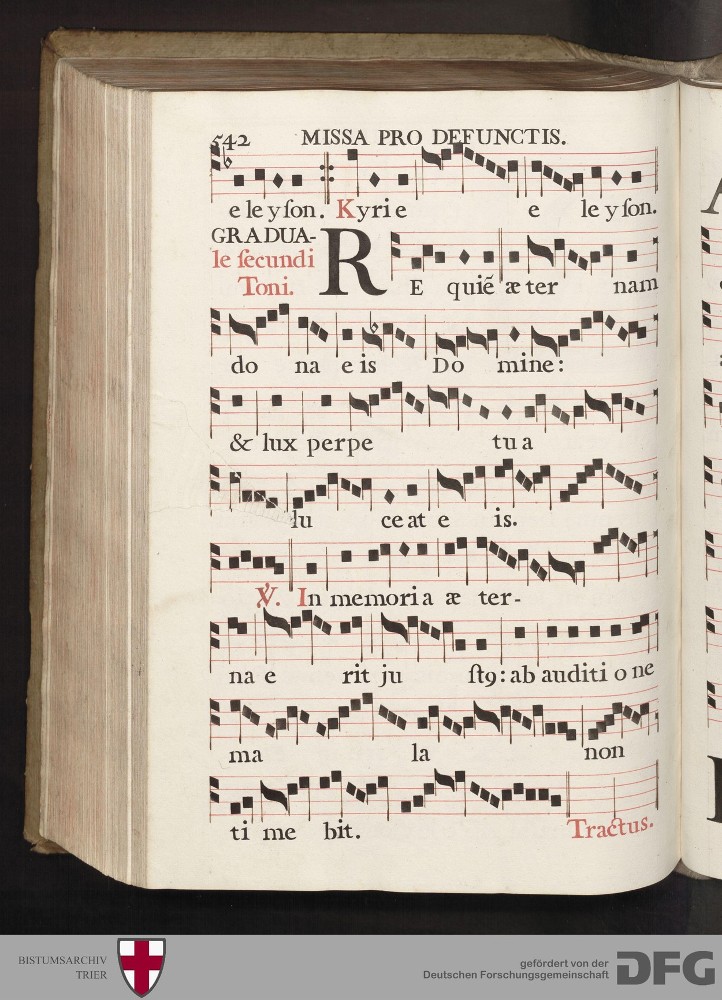 542 MISSA PRO DEFUNCTIS.
e le y ſon. Kyrie e le y ſon.
GRADUA-
le ſecundi
Toni.
RE quiẽ æ ter nam
do na e is Do mine:
& lux perpe tu a
lu ce at e is.
℣. In memori a æ ter-
na e rit ju ſtꝯ: ab auditi o ne
ma la non
ti me bit. Tractus.
BISTUMSARCHIV
TRIER
gefördert von der
Deutschen Forschungsgemeinschaft
DFG